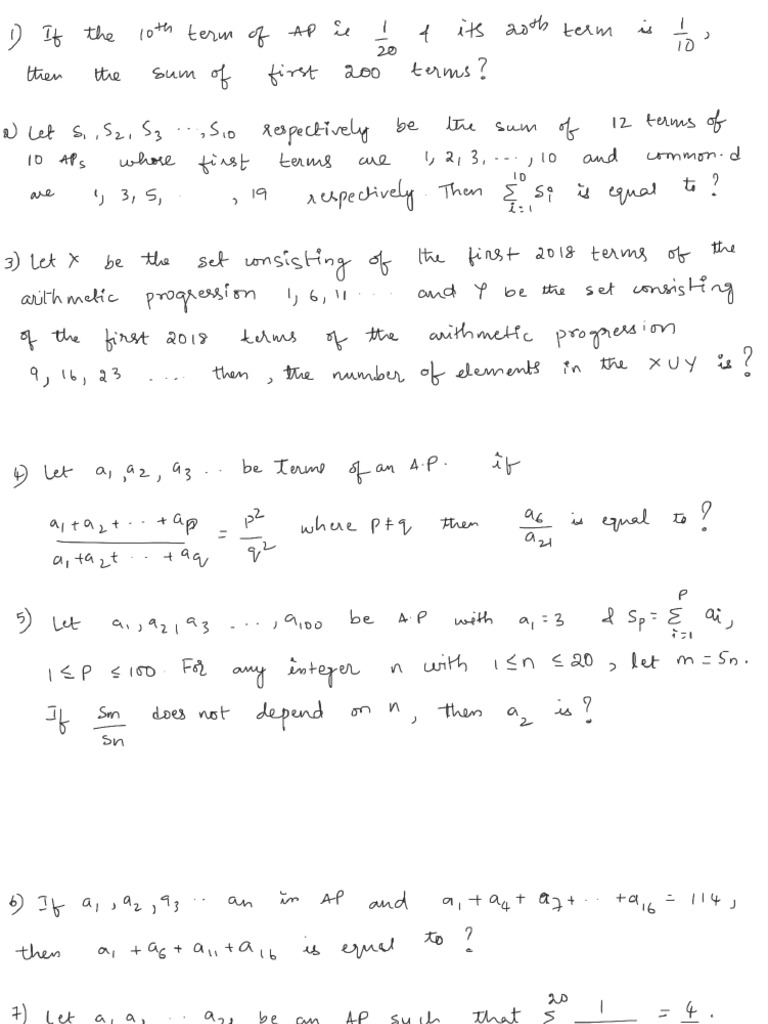 1) If the 10th term of AP is 1/20 & its 20th term is 1/10,
then the sum of first 200 terms?
2) Let S1, S2, S3 ..., S10 respectively be the sum of 12 terms of
10 APs whose first terms are 1, 2, 3, ..., 10 and common.d
are 1, 3, 5, ..., 19 respectively. Then 10 Σ i=1 Si is equal to?
3) Let X be the set consisting of the first 2018 terms of the
arithmetic progression 1, 6, 11 .... and Y be the set consisting
of the first 2018 terms of the arithmetic progression
9, 16, 23 .... then, the number of elements in the X∪Y is?
4) Let a1, a2, a3 .. be Terms of an A.P. if
(a1+a2+...+ap)/(a1+a2+...+aq) = p²/q² where p≠q then a6/a21 is equal to?
5) Let a1, a2, a3 ..., a100 be A.P with a1=3 & Sp = p Σ i=1 ai,
1≤P≤100. For any integer n with 1≤n≤20, let m=5n.
If Sm/Sn does not depend on n, then a2 is?
6) If a1, a2, a3 .. an in AP and a1+a4+a7+...+a16 = 114,
then a1+a6+a11+a16 is equal to?
7) Let a1 a2 .. be an AP such that 20 Σ 1 = 4.